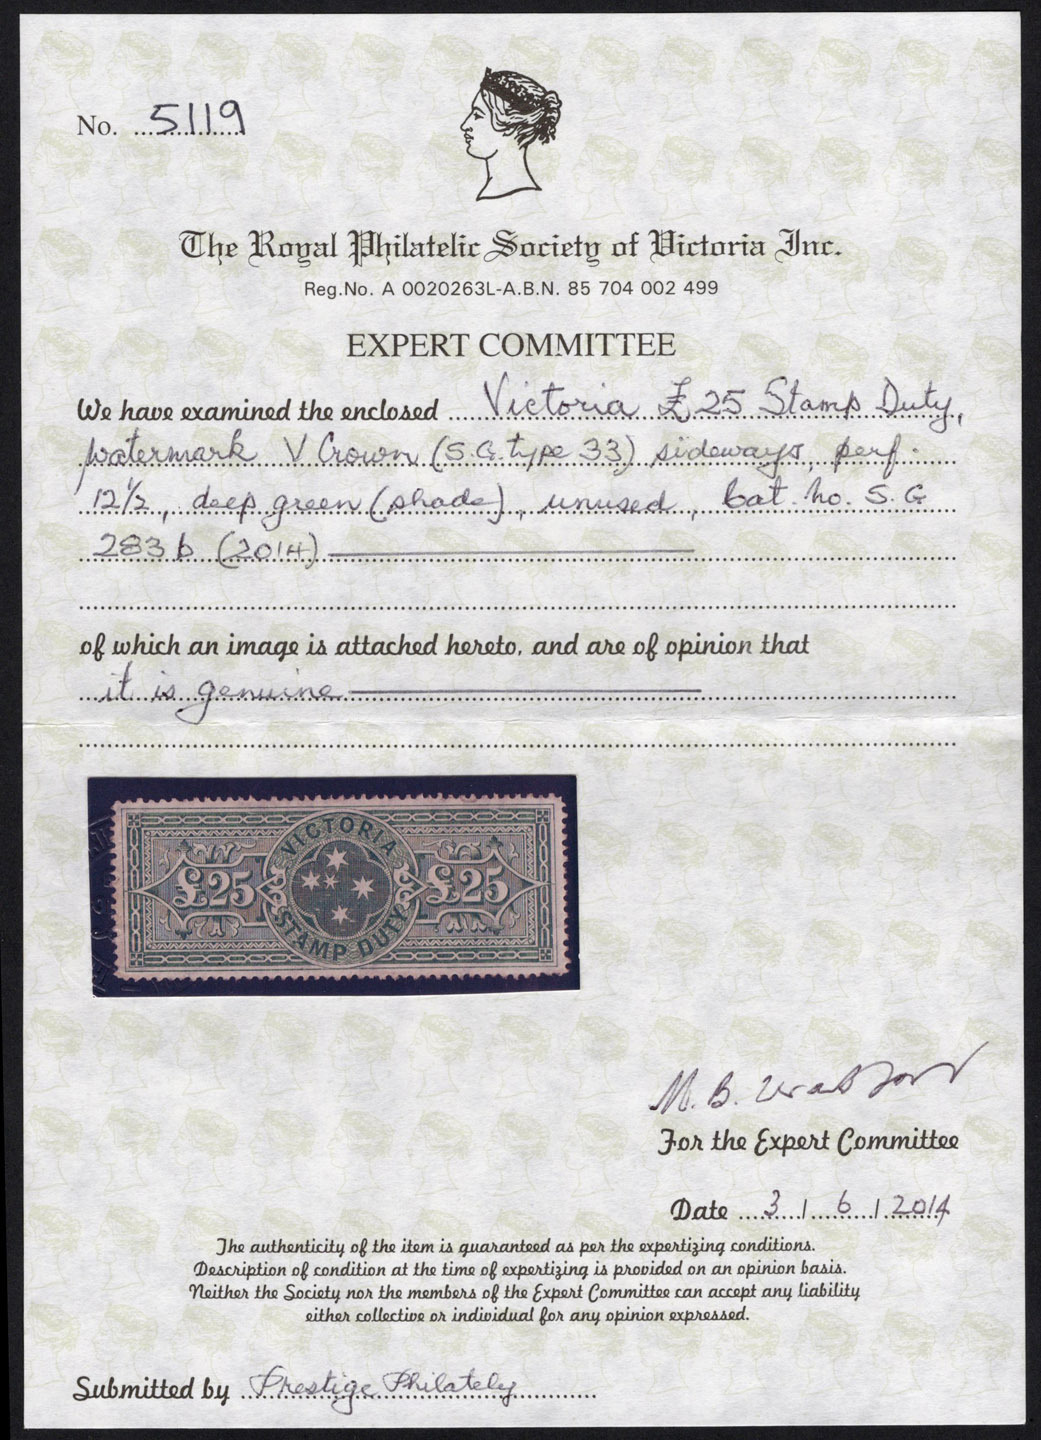 No. 5119
The Royal Philatelic Society of Victoria Inc.
Reg.No. A 0020263L-A.B.N. 85 704 002 499
EXPERT COMMITTEE
We have examined the enclosed Victoria £25 Stamp Duty,
watermark V Crown (S.G. type 33) sideways, perf.
12½, deep green (shade), unused, Cat. No. S.G
283b (2014)
of which an image is attached hereto, and are of opinion that
it is genuine
VICTORIA
£25 £25
STAMP DUTY
M. B.
For the Expert Committee
Date 3 / 6 / 2014
The authenticity of the item is guaranteed as per the expertizing conditions.
Description of condition at the time of expertizing is provided on an opinion basis.
Neither the Society nor the members of the Expert Committee can accept any liability
either collective or individual for any opinion expressed.
Submitted by Prestige Philately